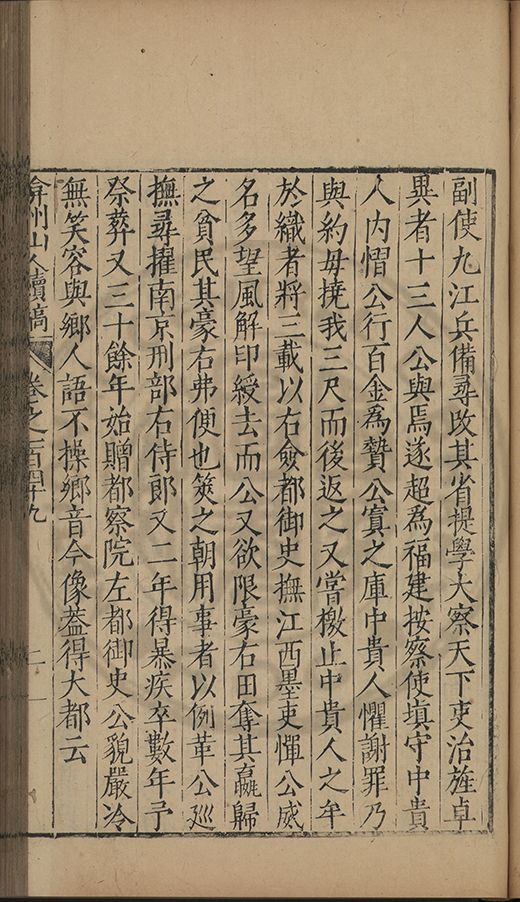 副使九江兵備尋改其省提學大察天下吏治旌卓
異者十三人公與焉遂超為福建按察使填守中貴
人内慴公行百金為贄公寘之庫中貴人懼謝罪乃
與約毋撓我三尺而後返之又嘗檄止中貴人之牟
於織者將三載以右僉都御史撫江西墨吏憚公威
名多望風解印綬去而公又欲限豪右田奪其嬴歸
之貧民其豪右弗便也筴之朝用事者以例革公廵
撫尋擢南京刑部右侍郎又二年得暴疾卒數年予
祭葬又三十餘年始贈都察院左都御史公貌嚴冷
無笑容與鄉人語不操鄉音今像蓋得大都云
弇州山人續稿 卷之一百四十九 二